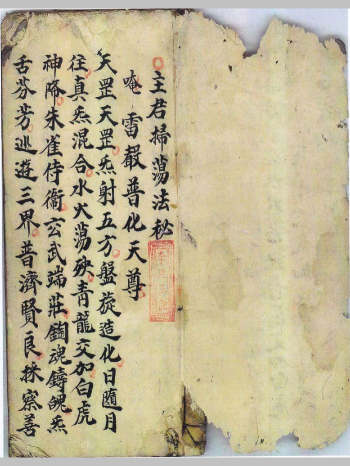 主君掃蕩法秘
唵 雷聲普化天尊
天罡天罡炁射五方盤旋造化日隨月
往真炁混合水火蕩殃青龍交加白虎
神降朱雀侍衛玄武端莊鍧魂鑄魄炁
舌芬芳巡遊三界普濟賢良採察善